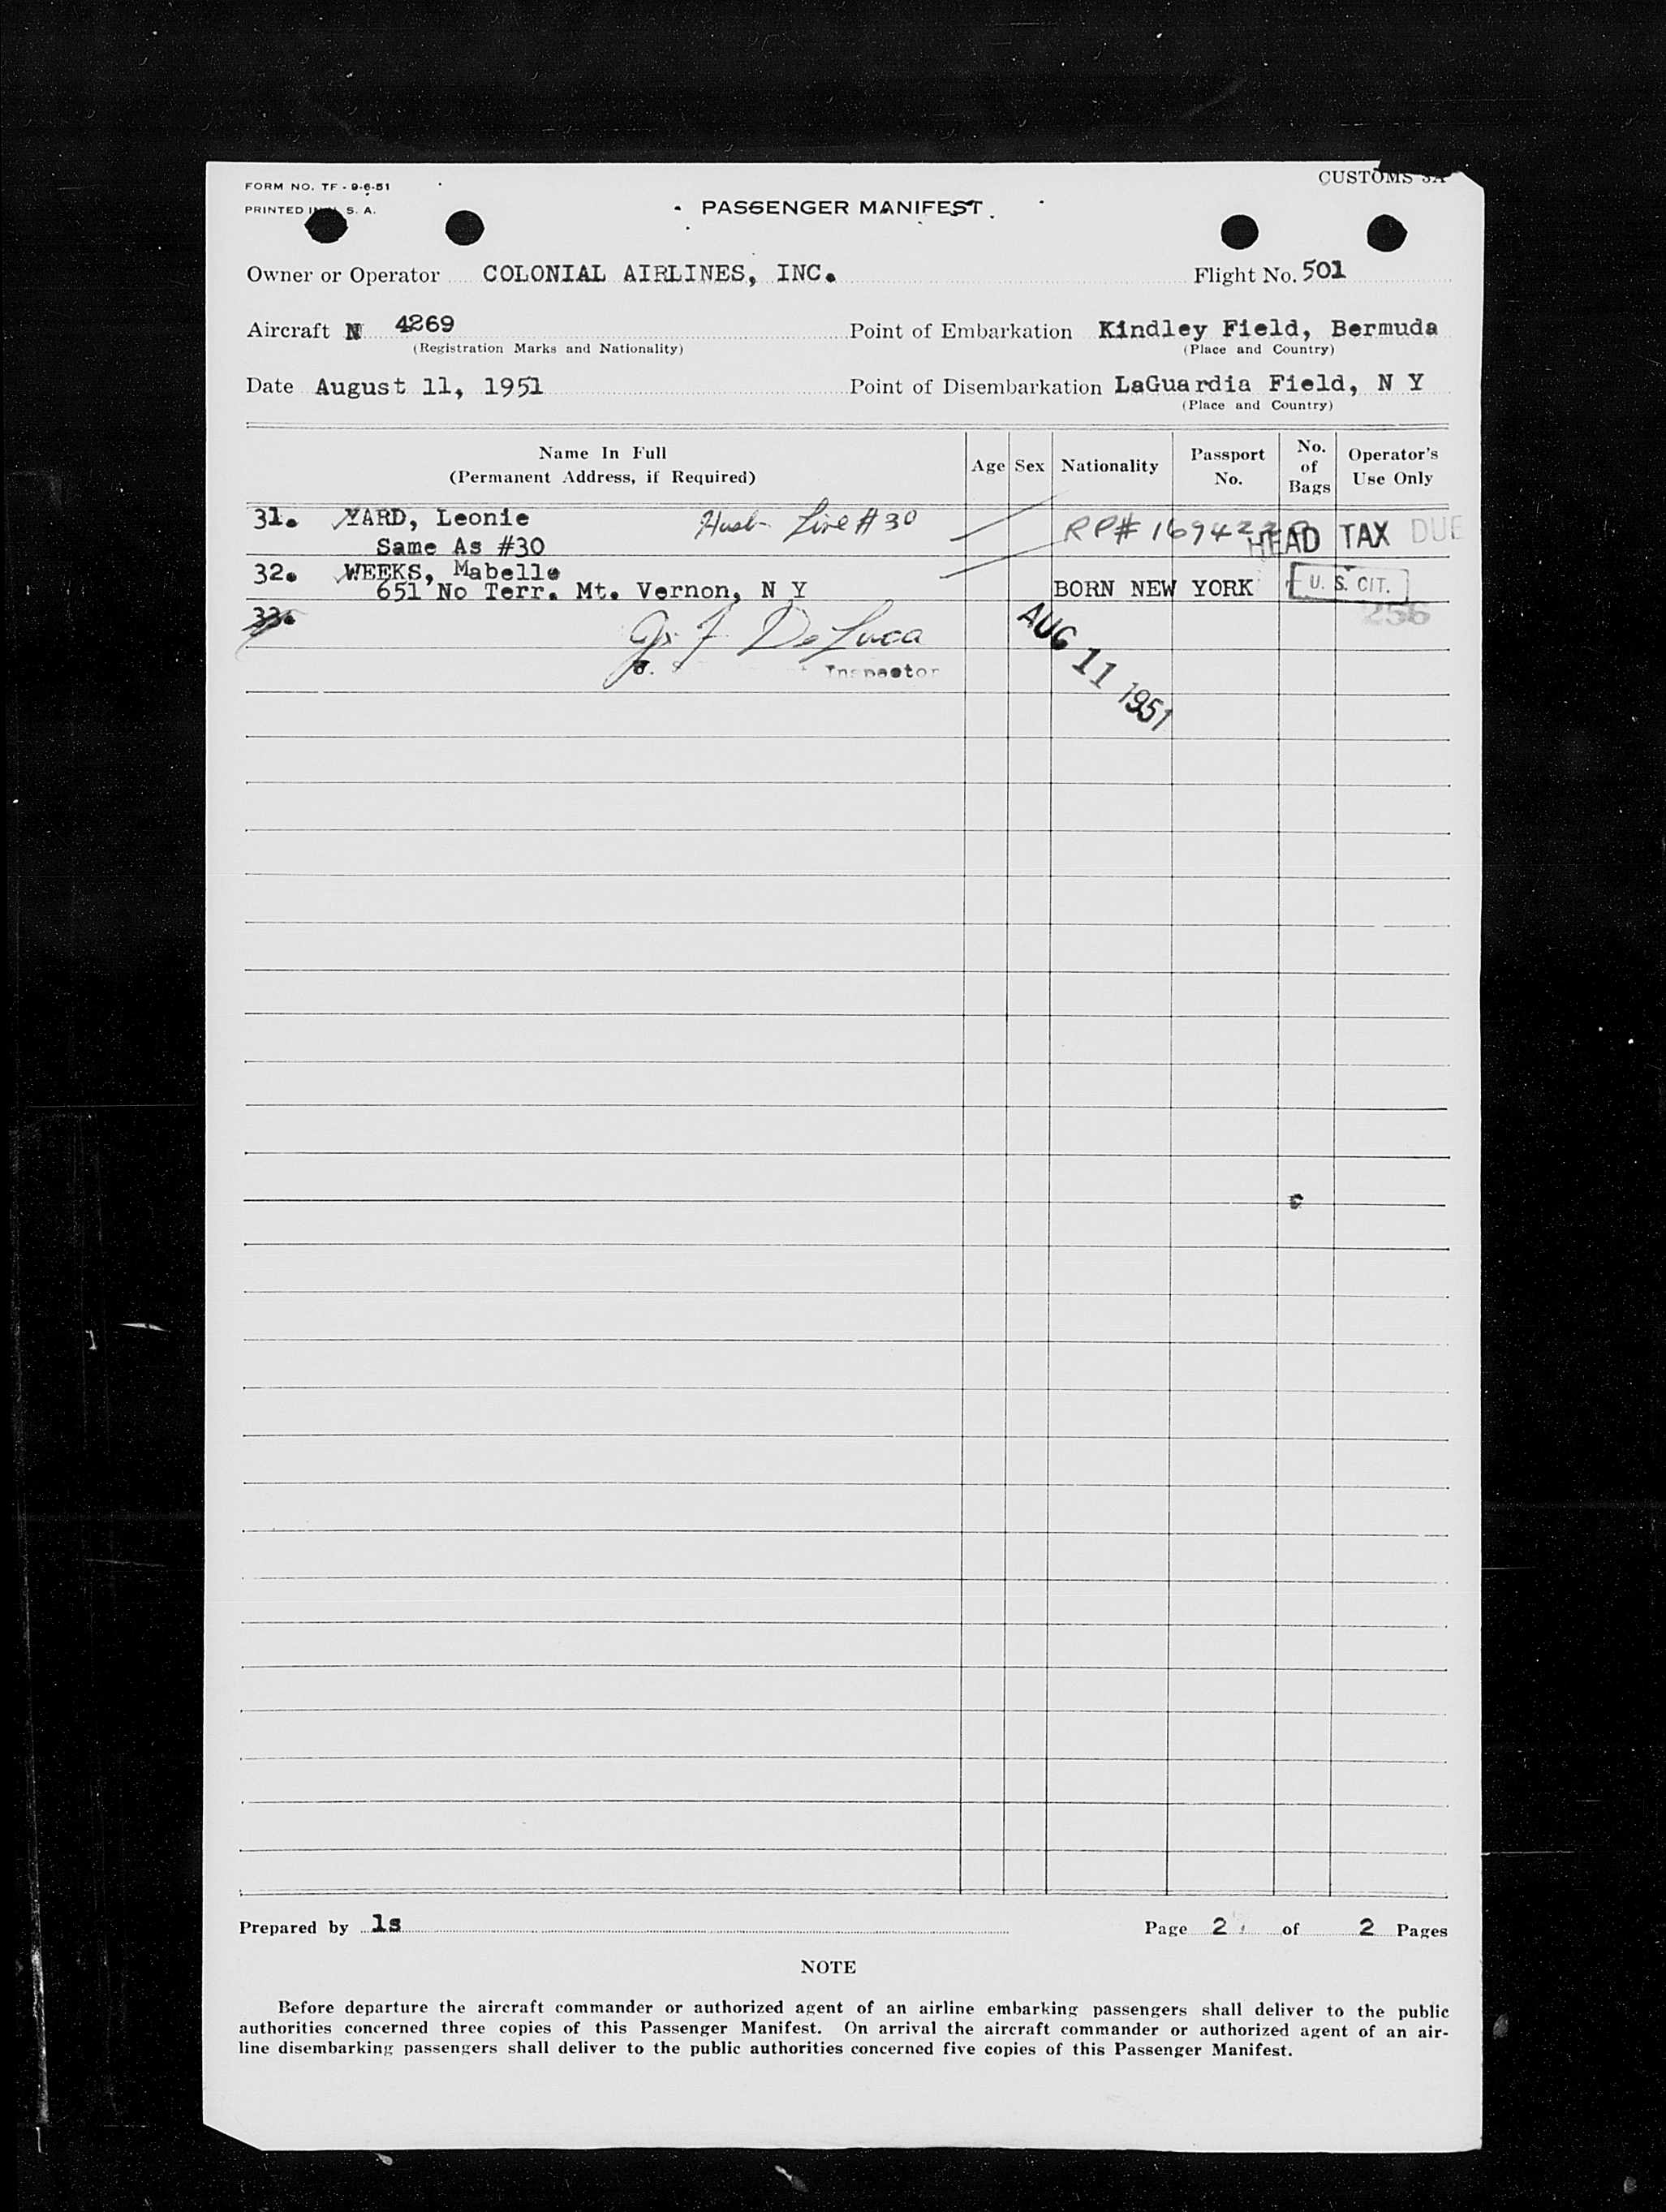 FORM NO. TF - 9-6-51
PRINTED IN U. S. A.
CUSTOMS 3A
PASSENGER MANIFEST
Owner or Operator COLONIAL AIRLINES, INC.
Flight No. 501
Aircraft N 4269
(Registration Marks and Nationality)
Point of Embarkation Kindley Field, Bermuda
(Place and Country)
Date August 11, 1951
Point of Disembarkation LaGuardia Field, N Y
(Place and Country)
Name In Full
(Permanent Address, if Required)
Age
Sex
Nationality
Passport
No.
No.
of
Bags
Operator's
Use Only
31. YARD, Leonie
Husb- Line # 30
RP# 169422
HEAD TAX DUE
Same As #30
32. WEEKS, Mabelle
651 No Terr. Mt. Vernon, N Y
BORN NEW YORK
U. S. CIT.
256
33.
J. F. DeLuca
Inspector
AUG 11 1951
Prepared by ls
Page 2 of 2 Pages
NOTE
Before departure the aircraft commander or authorized agent of an airline embarking passengers shall deliver to the public
authorities concerned three copies of this Passenger Manifest. On arrival the aircraft commander or authorized agent of an air-
line disembarking passengers shall deliver to the public authorities concerned five copies of this Passenger Manifest.